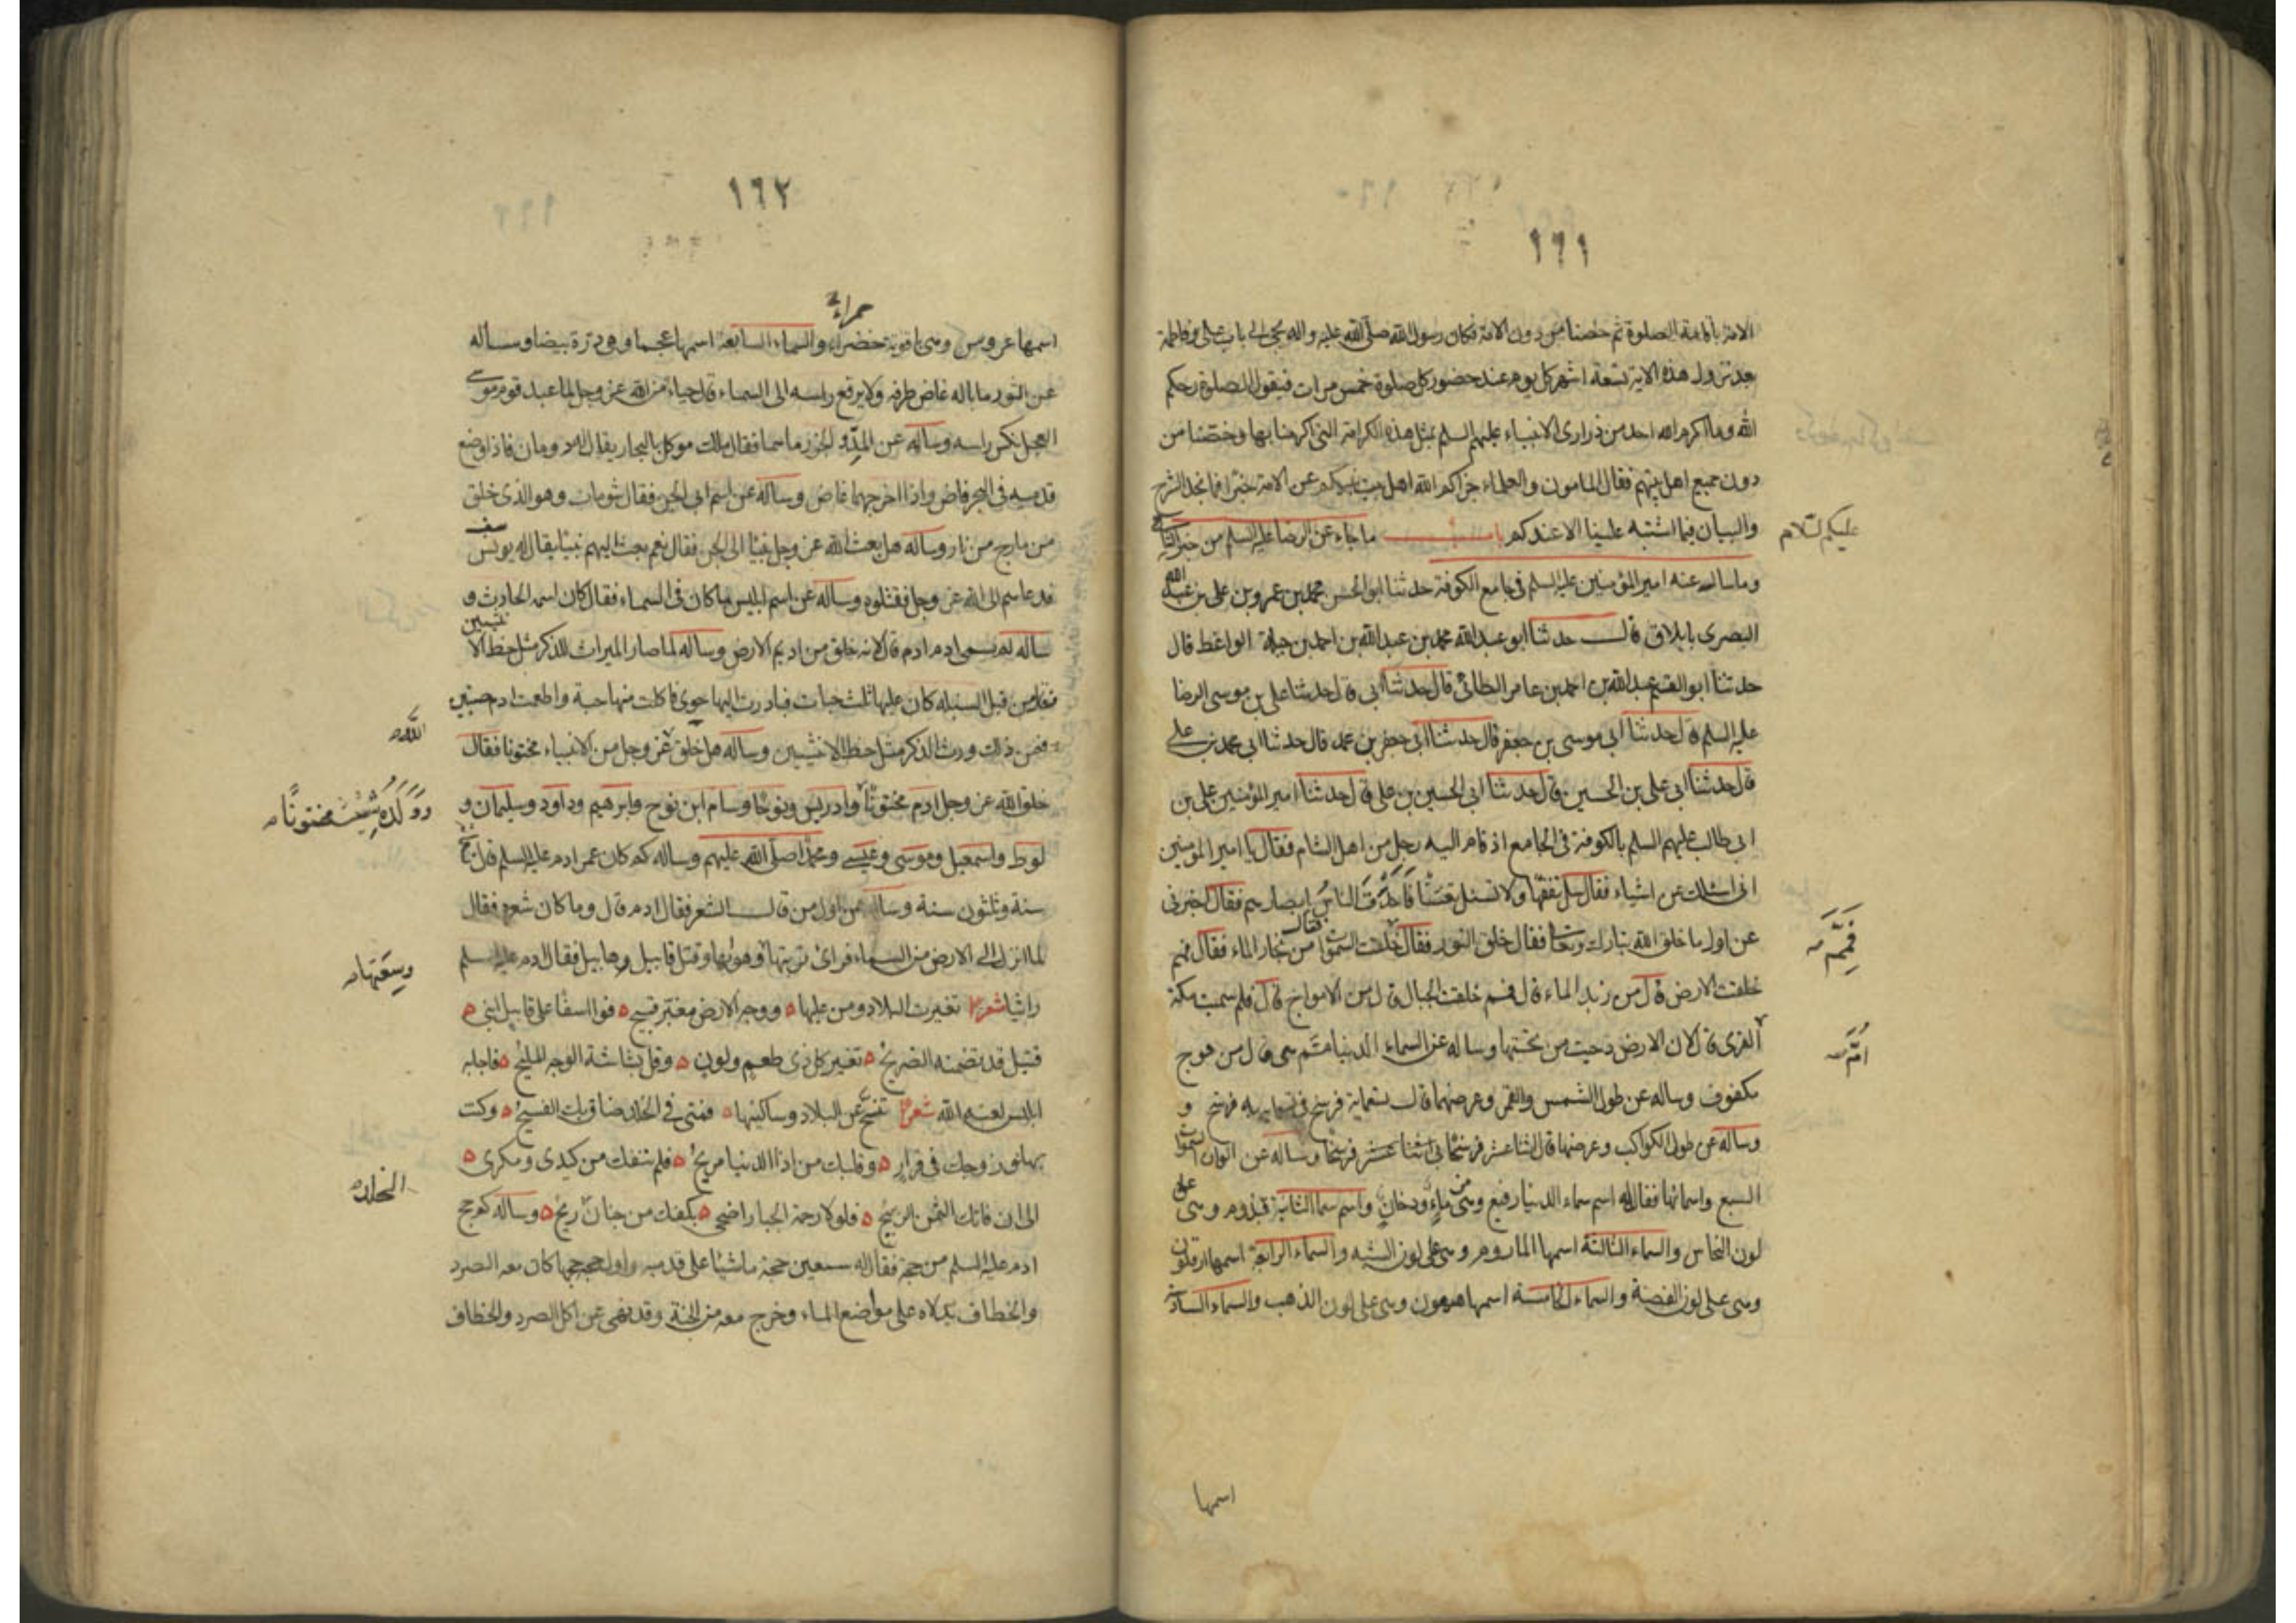 ١٦١
الامة باقامة الصلوة ثم خصنا من دون الامة فكان رسول الله صلى الله عليه واله يجئ الى باب على وفاطمة
بعد نزول هذه الاية تسعة اشهر كل يوم عند حضور كل صلوة خمس مرات فيقول الصلوة رحمكم
الله وما اكرم الله احد من ذرارى الانبياء عليهم السلم بمثل هذه الكرامة التى اكرمنا بها وخصنا من
دون جميع اهل بيتهم فقال المامون والعلماء جزاكم الله اهل بيت نبيكم عن الامة خيرا فما نجد الشرح
والبيان فيما اشتبه علينا الا عندكم باب ما جاء عن الرضا عليه السلم من خبر الشامى
عليكم السلام
وما ساله عنه امير المؤمنين عليه السلم فى جامع الكوفة حدثنا ابو الحسن محمد بن عمرو بن على بن عبد الله
البصرى بايلاق قال حدثنا ابو عبد الله محمد بن عبد الله بن احمد بن جبلة الواعظ قال
حدثنا ابو القسم عبد الله بن احمد بن عامر الطائى قال حدثنا ابى قال حدثنا على بن موسى الرضا
عليه السلم قال حدثنا ابى موسى بن جعفر قال حدثنا ابى جعفر بن محمد قال حدثنا ابى محمد بن على
قال حدثنا ابى على بن الحسين قال حدثنا ابى الحسين بن على قال حدثنا امير المؤمنين على بن
ابى طالب عليهم السلم بالكوفة فى الجامع اذ قام اليه رجل من اهل الشام فقال يا امير المومنين
انى اسئلك عن اشياء فقال سل تفقها ولا تسئل تعنتا فَاَحْدَقَ الناسُ بابصارهم فقال اخبرنى
عن اول ما خلق الله تبارك وتعا فقال خلق النور فقال خلقت السموات من بخار الماء فقال فمم
فقال
فَمِمَّ
خلقت الارض قال من زبد الماء قال فمم خلقت الجبال قال من الامواج قال فلم سميت مكة
القرى قال لان الارض دحيت من تحتها وساله عن السماء الدنيا مم هى قال من موج
اُمَّ
مكفوف وساله عن طول الشمس والقمر وعرضهما قال تسعماية فرسخ فى تسعماية فرسخ و
وساله عن طول الكواكب وعرضها قال اثنا عشر فرسخا فى اثنا عشر فرسخا وساله عن الوان السموات
السبع واسمائها فقال له اسم سماء الدنيا رفيع وهى من ماءٍ ودخانٍ واسم سما الثانية قيدوم وهى على
لون النحاس والسماء الثالثة اسمها الماروم وهى على لون الشبه والسماء الرابعة اسمها ارفلون
وهى على لون الفضة والسماء الخامسة اسمها هيعون وهى على لون الذهب والسماء السادسة
اسمها
١٦٢
اسمها عروس وهى ياقوتة خضراء والسماء السابعة اسمها عجما وهى درة بيضا وساله
حمراء
عن الثور ما باله غاض طرفه ولا يرفع راسه الى السماء قال حياء من الله عز وجل لما عبد قوم موسى
العجل نكس راسه وساله عن المدّ والجزر ما هما فقال ملك موكل بالبحار يقال له رومان فاذا وضع
قدميه فى البحر فاض واذا اخرجهما غاض وساله عن اسم ابى الجن فقال شومان وهو الذى خلق
من مارج من نار وساله هل بعث الله عز وجل نبيا الى الجن فقال نعم بعث اليهم نبيا يقال له يوسف
فدعاهم الى الله عز وجل فقتلوه وساله عن اسم ابليس ما كان فى السماء فقال كان اسمه الحارث و
ساله لم سمى ادم ادم قال لانه خلق من اديم الارض وساله لما صار الميراث للذكر مثل حظ الانثيين
فقال من قبل السنبله كان عليها ثلث حبات فبادرت اليها حوى فاكلت منها حبة واطعمت ادم حبتين
فمن ذلك ورث الذكر مثل حظ الانثيين وساله هل خلق عز وجل من الانبياء مختونا فقال
الله
خلق الله عز وجل ادم مختونًا وادريس ونوحا وسام ابن نوح وابرهيم وداود وسليمان و
وَوَلَدُه شِيْث مختونًا
لوط واسمعيل وموسى وعيسى ومحمدا صلى الله عليهم وساله كم كان عمر ادم عليه السلم قال
سنة وثلثون سنة وساله عن اول من قال الشعر فقال ادم قال وما كان شعره فقال
لما انزل الى الارض من السماء فراى تربتها وهوائها وقتل قابيل هابيل فقال ادم عليه السلم
وسِعَتها
راثيا شعر تغيرت البلاد ومن عليها ووجه الارض مغبر قبيح فوا اسفا على قابيل ابنى
قتيل قد تضمنه الضريح تغير كل ذى طعم ولون وقل بشاشة الوجه المليح فاجابه
ابليس لعنه الله شعر تنحّ عن البلاد وساكنيها فمتى فى الخلد ضاق بك الفسيح وكنت
بها وزوجك فى قرار وقلبك من اذا الدنيا مريح فلم تنفك من كيدى ومكرى
الخلد
الى ان فاتك الثمن الربيح فلولا رحمة الجبار اضحى بكفك من جنان ريح وساله كم حج
ادم عليه السلم من حجة فقال له سبعين حجة ماشيًا على قدميه واول حجة حجها كان معه الصرد
والخطاف يدلاه على مواضع الماء وخرج معه من الجنة وقد نهى عن اكل الصرد والخطاف